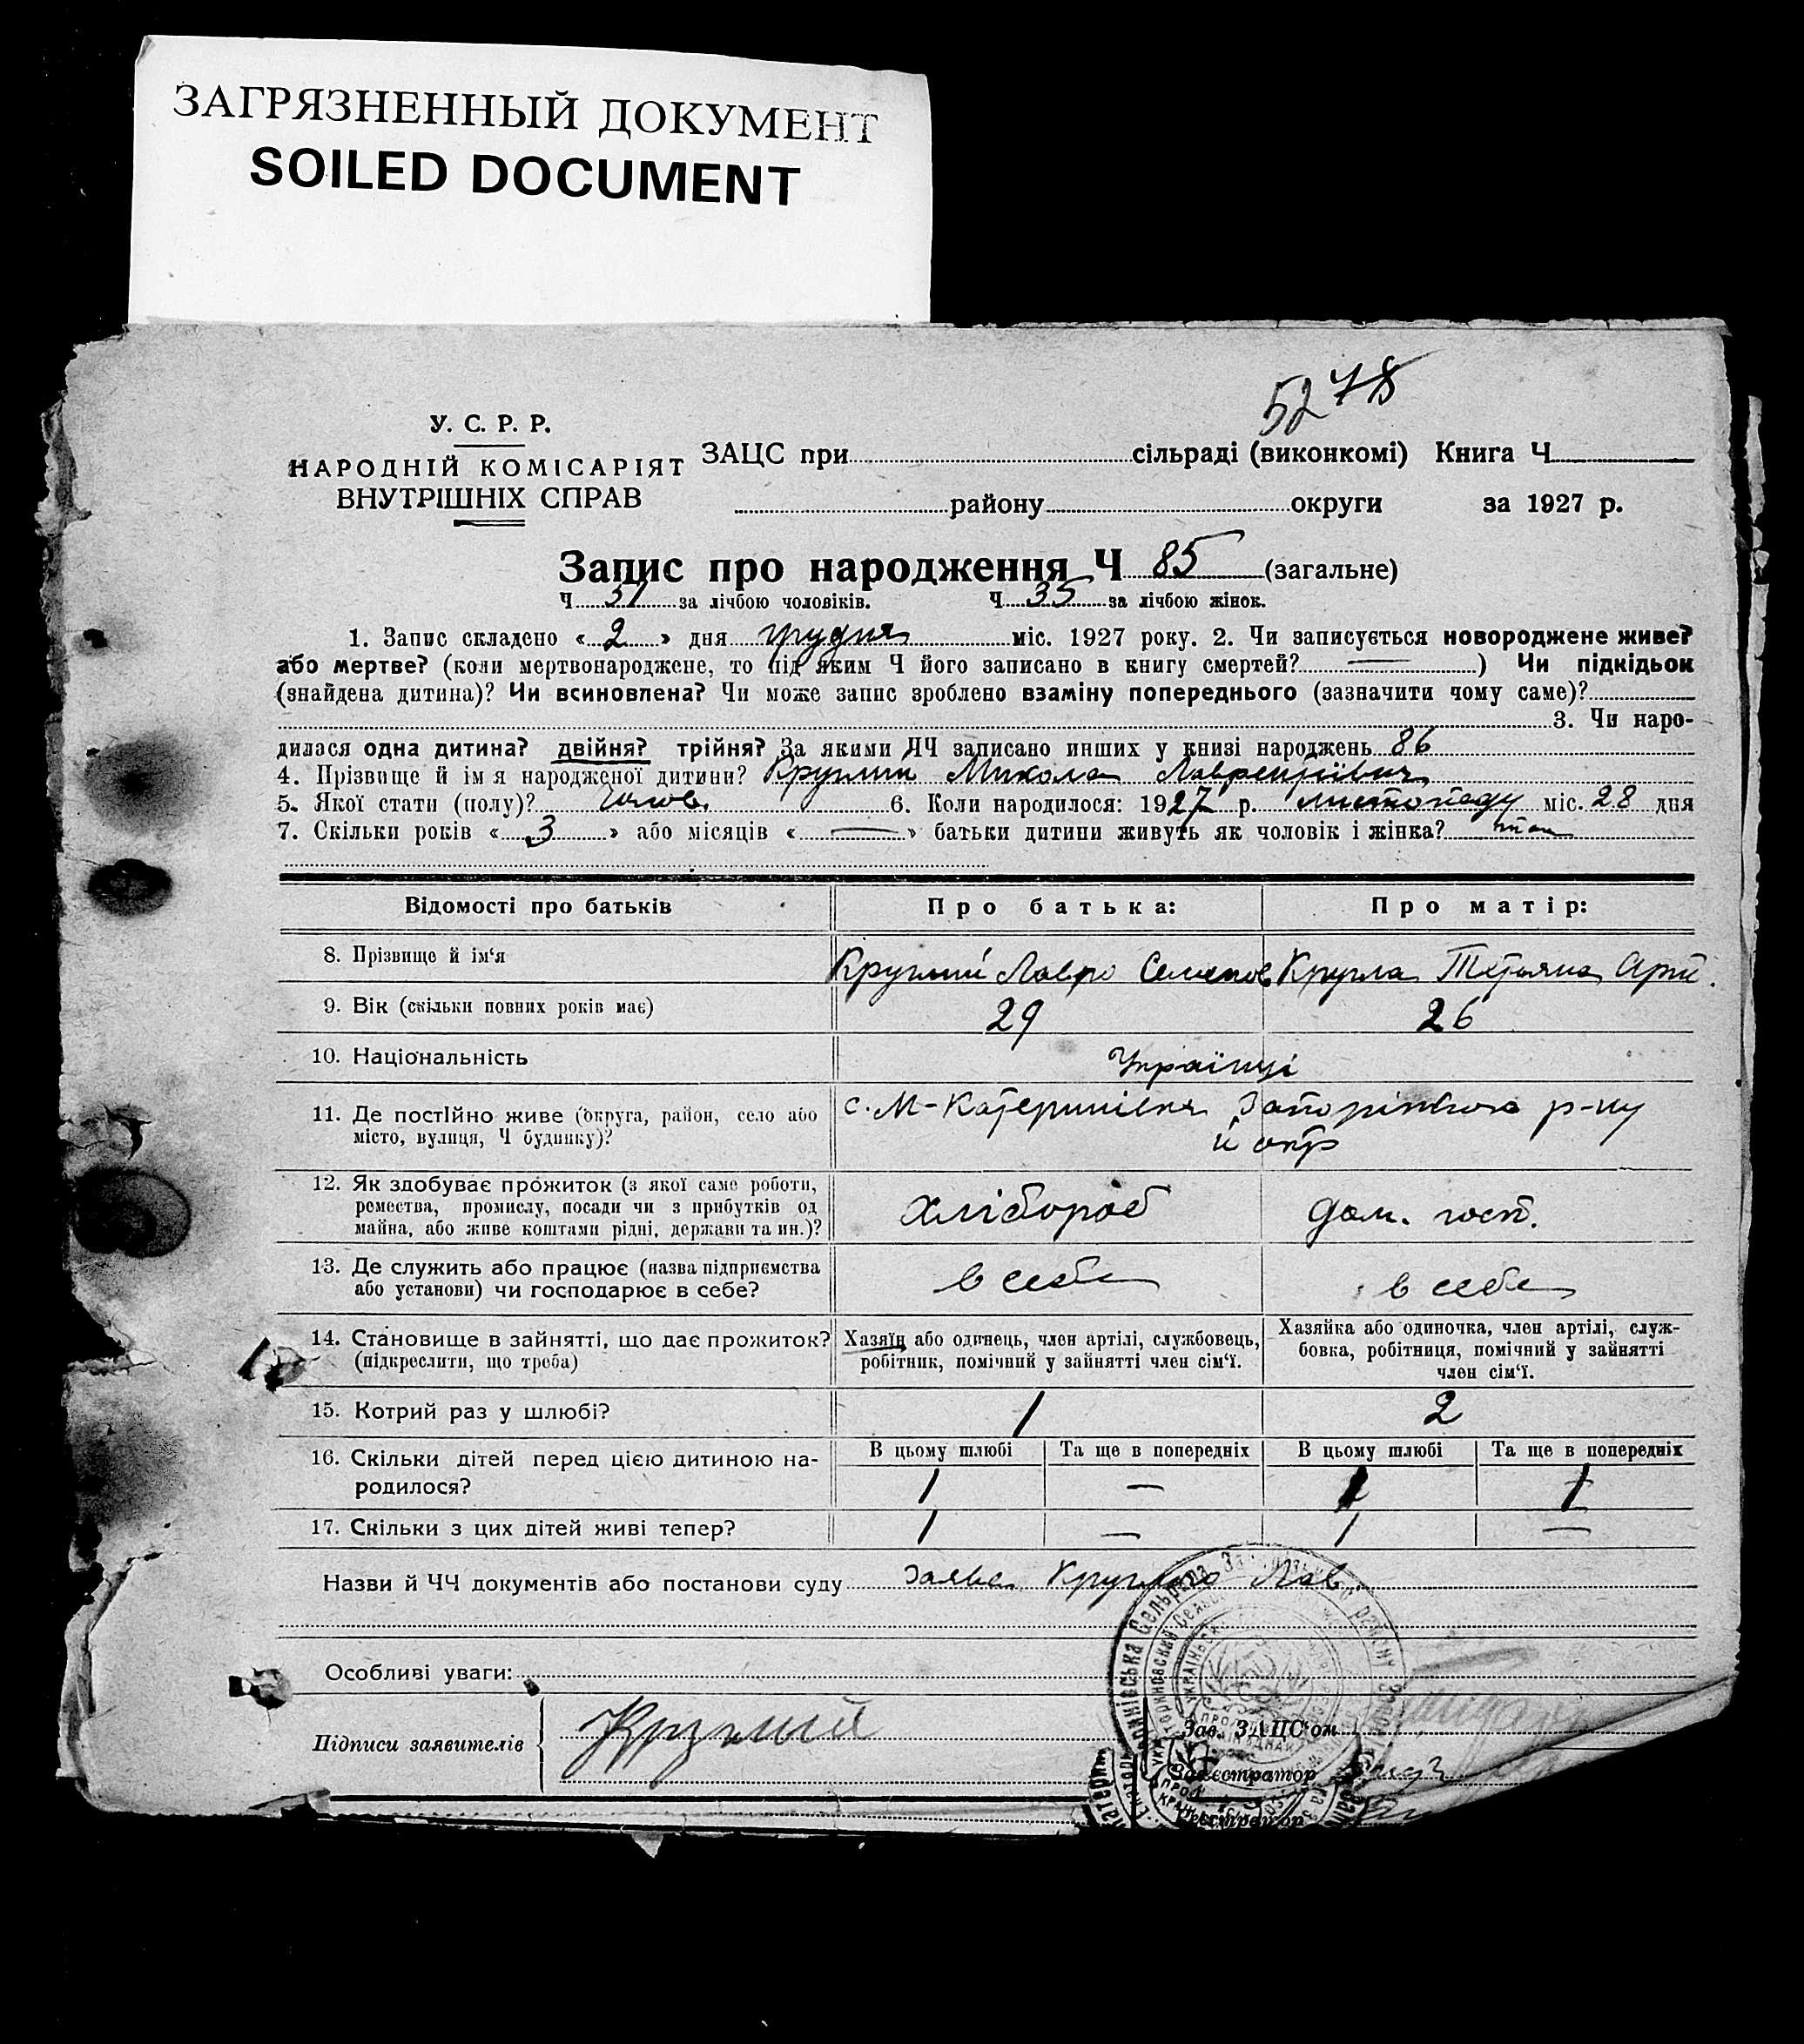 ЗАГРЯЗНЕННЫЙ ДОКУМЕНТ
SOILED DOCUMENT
5278
У. С. Р. Р.
НАРОДНІЙ КОМІСАРІЯТ
ВНУТРІШНІХ СПРАВ
ЗАЦС при сільраді (виконкомі) Книга Ч
району округи за 1927 р.
Запис про народження Ч 85 (загальне)
Ч 51 за лічбою чоловіків. Ч 35 за лічбою жінок.
1. Запис складено « 2 » дня грудня міс. 1927 року. 2. Чи записується новороджене живе?
або мертве? (коли мертвонароджене, то під яким Ч його записано в книгу смертей? — ) Чи підкідьок
(знайдена дитина)? Чи всиновлена? Чи може запис зроблено взаміну попереднього (зазначити чому саме)?
3. Чи наро-
дилася одна дитина? двійня? трійня? За якими ЧЧ записано инших у книзі народжень 86
4. Прізвище й ім'я народженої дитини? Круглий Микола Лаврентійович
5. Якої стати (полу)? чолов. 6. Коли народилося: 1927 р. листопаду міс. 28 дня
7. Скільки років « 3 » або місяців « — » батьки дитини живуть як чоловік і жінка? так
Відомості про батьків Про батька: Про матір:
8. Прізвище й ім'я Круглий Лавро Семенов Кругла Тетяна Арт.
9. Вік (скільки повних років має) 29 26
10. Національність Українці
11. Де постійно живе (округа, район, село або
місто, вулиця, Ч будинку)?
с. М-Катеринівка Запоріжського р-ну
й окр
12. Як здобуває прожиток (з якої саме роботи,
ремества, промислу, посади чи з прибутків од
майна, або живе коштами рідні, держави та ин.)?
хлібороб дом. госп.
13. Де служить або працює (назва підприємства
або установи) чи господарює в себе?
в себе в себе
14. Становище в зайнятті, що дає прожиток?
(підкреслити, що треба)
Хазяїн або одинець, член артілі, службовець,
робітник, помічний у зайнятті член сім'ї.
Хазяйка або одиночка, член артілі, служ-
бовка, робітниця, помічний у зайнятті
член сім'ї.
15. Котрий раз у шлюбі? 1 2
В цьому шлюбі Та ще в попередніх В цьому шлюбі Та ще в попередніх
16. Скільки дітей перед цією дитиною на-
родилося?
1 — 1 1
17. Скільки з цих дітей живі тепер? 1 — 1 —
Назви й ЧЧ документів або постанови суду Заява Круглого Лав
Особливі уваги:
Підписи заявителів Круглий
Зав. ЗАЦС'ом
Реєстратор